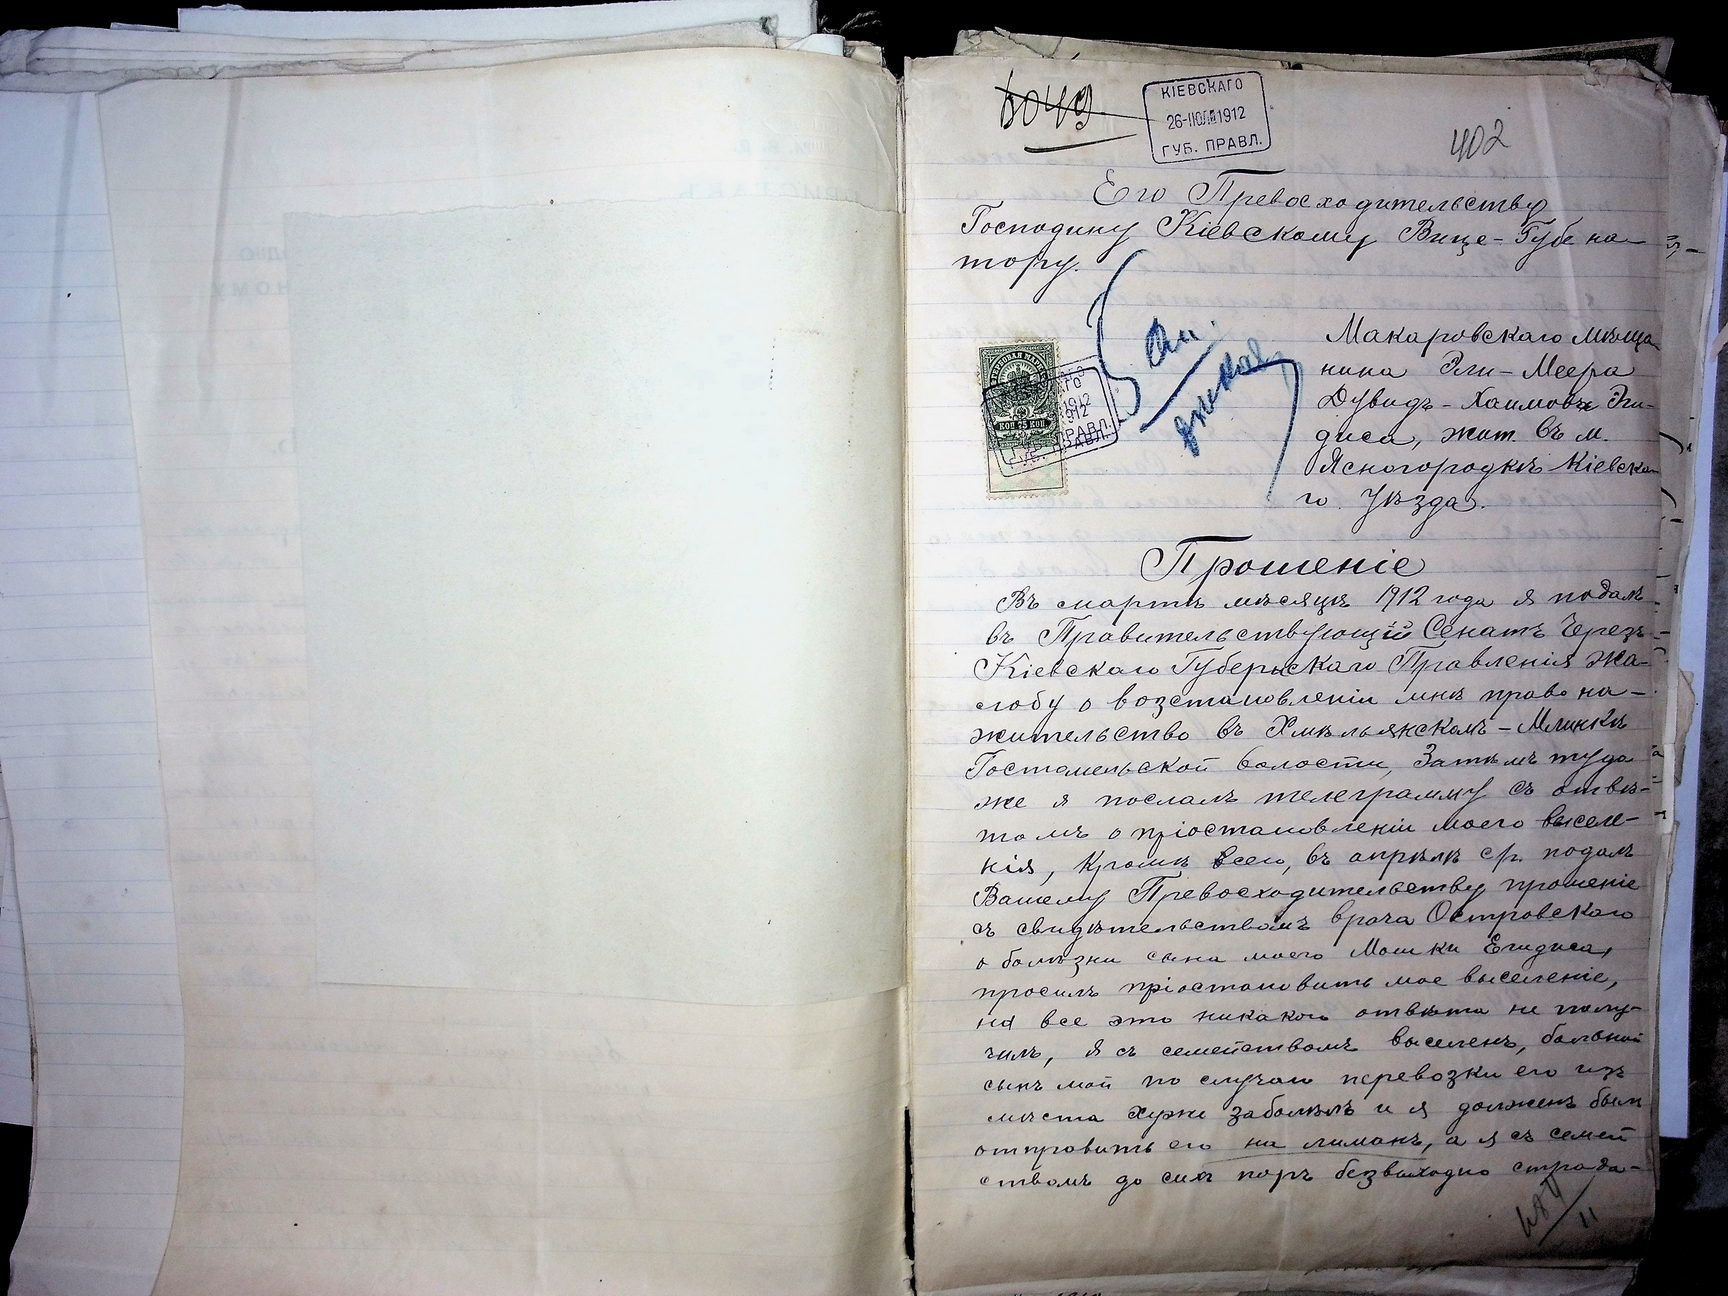 6049
КІЕВСКАГО
26-ІЮЛ 1912
ГУБ. ПРАВЛ.
402
Его Превосходительству
Господину Кіевскому Вице-Губена-
тору.
Макаровскаго мѣща
нина Эли-Меера
Дувидъ-Хаимовъ Эги-
диса, жит. въ м.
Ясногородкѣ Кіевска-
го Уѣзда.
КОП 75 КОП
Прошеніе
Въ мартѣ мѣсяцѣ 1912 года я подалъ
въ Правительствующій Сенатъ Черезъ
Кіевскаго Губернскаго Правленія жа-
лобу о возстановленіи мнѣ право на-
жительство въ Хмѣльякскомъ-Млинкѣ
Гостомельской волости, Затѣмъ туда
же я послалъ телеграмму съ отвѣ-
томъ о пріостановленіи моего выселе-
нія, Кромѣ всего, въ апрѣлѣ с/г. подалъ
Вашему Превосходительству прошеніе
съ свидѣтельствомъ врача Островскаго
о болѣзни сына моего Мошки Егидиса,
просилъ пріостановить мое выселеніе,
на все это никакого отвѣта не полу-
чилъ, Я съ семействомъ выселенъ, больной
сынъ мой по случаю перевозки его изъ
мѣста хуже заболѣлъ и я долженъ былъ
отправить его на лиманъ, а я съ семей
ствомъ до сихъ поръ безвыходно страда-
11